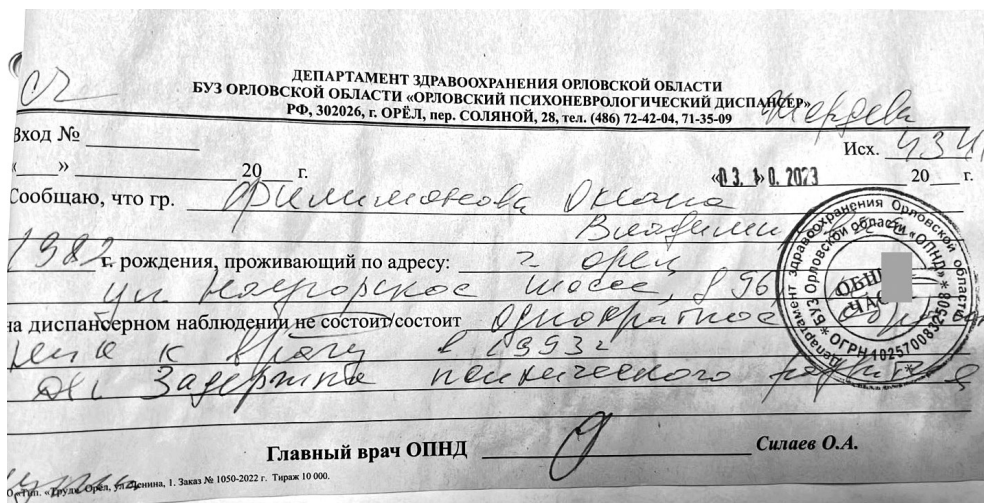 ДЕПАРТАМЕНТ ЗДРАВООХРАНЕНИЯ ОРЛОВСКОЙ ОБЛАСТИ
БУЗ ОРЛОВСКОЙ ОБЛАСТИ «ОРЛОВСКИЙ ПСИХОНЕВРОЛОГИЧЕСКИЙ ДИСПАНСЕР»
РФ, 302026, г. ОРЁЛ, пер. СОЛЯНОЙ, 28, тел. (486) 72-42-04, 71-35-09
Вход № Исх. 434
« » 20 г. «03.10.2023 20 г.
Сообщаю, что гр. Филимонова Оксана
Владими
1982 г. рождения, проживающий по адресу: г. Орел
ул Наугорское шоссе, д 96
на диспансерном наблюдении не состоит/состоит однократное
к врачу в 1993 г
Ds: Задержка психического развития
Главный врач ОПНД Силаев О.А.
«Труд», Орёл, ул. Ленина, 1. Заказ № 1050-2022 г. Тираж 10 000.
Департамент здравоохранения Орловской области
БУЗ Орловской области «ОПНД» * ОГРН 1025700832508 *